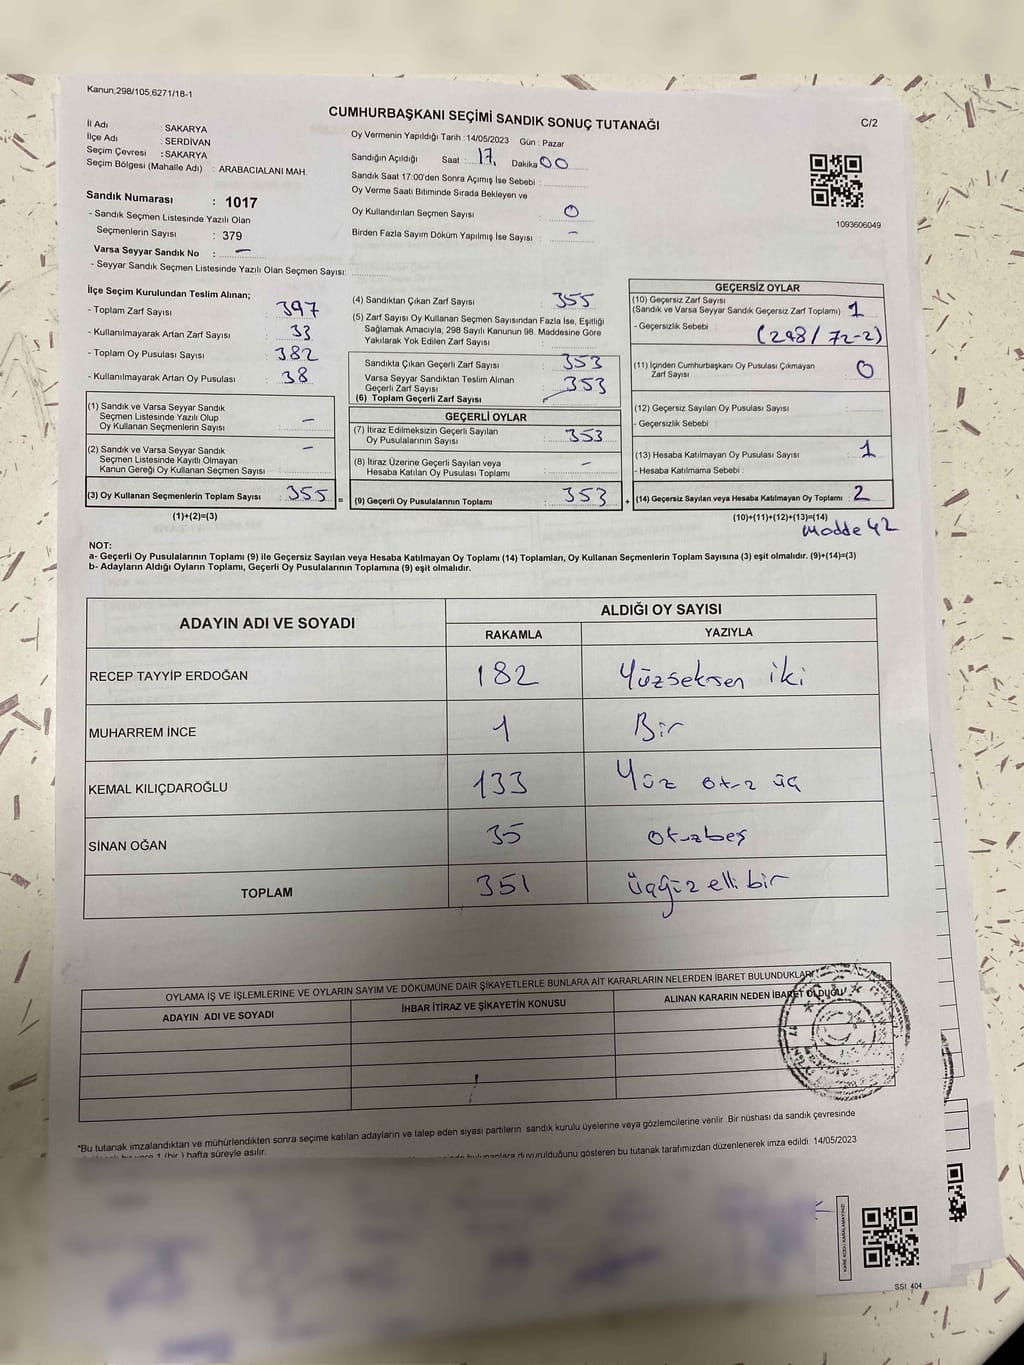 Kanun;298/105,6271/18-1
CUMHURBAŞKANI SEÇİMİ SANDIK SONUÇ TUTANAĞI
C/2
İl Adı : SAKARYA
İlçe Adı : SERDİVAN
Seçim Çevresi : SAKARYA
Seçim Bölgesi (Mahalle Adı) : ARABACIALANI MAH.
Oy Vermenin Yapıldığı Tarih : 14/05/2023 Gün : Pazar
Sandığın Açıldığı Saat : 17. Dakika 00
Sandık Saat 17.00'den Sonra Açımış İse Sebebi :
Oy Verme Saati Bitiminde Sırada Bekleyen ve
Oy Kullandırılan Seçmen Sayısı : 0
Birden Fazla Sayım Döküm Yapılmış İse Sayısı : -
1093606049
Sandık Numarası : 1017
- Sandık Seçmen Listesinde Yazılı Olan
Seçmenlerin Sayısı : 379
Varsa Seyyar Sandık No : -
- Seyyar Sandık Seçmen Listesinde Yazılı Olan Seçmen Sayısı:
İlçe Seçim Kurulundan Teslim Alınan;
- Toplam Zarf Sayısı : 397
- Kullanılmayarak Artan Zarf Sayısı : 33
- Toplam Oy Pusulası Sayısı : 382
- Kullanılmayarak Artan Oy Pusulası : 38
(1) Sandık ve Varsa Seyyar Sandık
Seçmen Listesinde Yazılı Olup
Oy Kullanan Seçmenlerin Sayısı : -
(2) Sandık ve Varsa Seyyar Sandık
Seçmen Listesinde Kayıtlı Olmayan
Kanun Gereği Oy Kullanan Seçmen Sayısı : -
(3) Oy Kullanan Seçmenlerin Toplam Sayısı : 355 =
(1)+(2)=(3)
(4) Sandıktan Çıkan Zarf Sayısı : 355
(5) Zarf Sayısı Oy Kullanan Seçmen Sayısından Fazla İse, Eşitliği
Sağlamak Amacıyla; 298 Sayılı Kanunun 98. Maddesine Göre
Yakılarak Yok Edilen Zarf Sayısı :
Sandıkta Çıkan Geçerli Zarf Sayısı : 353
Varsa Seyyar Sandıktan Teslim Alınan
Geçerli Zarf Sayısı : 353
(6) Toplam Geçerli Zarf Sayısı
GEÇERLİ OYLAR
(7) İtiraz Edilmeksizin Geçerli Sayılan
Oy Pusulalarının Sayısı : 353
(8) İtiraz Üzerine Geçerli Sayılan veya
Hesaba Katılan Oy Pusulası Toplamı : -
(9) Geçerli Oy Pusulalarının Toplamı : 353 +
GEÇERSİZ OYLAR
(10) Geçersiz Zarf Sayısı
(Sandık ve Varsa Seyyar Sandık Geçersiz Zarf Toplamı) : 1
- Geçersizlik Sebebi : (298/72-2)
(11) İçinden Cumhurbaşkanı Oy Pusulası Çıkmayan
Zarf Sayısı : 0
(12) Geçersiz Sayılan Oy Pusulası Sayısı :
- Geçersizlik Sebebi :
(13) Hesaba Katılmayan Oy Pusulası Sayısı : 1
- Hesaba Katılmama Sebebi :
(14) Geçersiz Sayılan veya Hesaba Katılmayan Oy Toplamı : 2
(10)+(11)+(12)+(13)=(14)
Madde 42
NOT:
a- Geçerli Oy Pusulalarının Toplamı (9) ile Geçersiz Sayılan veya Hesaba Katılmayan Oy Toplamı (14) Toplamları, Oy Kullanan Seçmenlerin Toplam Sayısına (3) eşit olmalıdır. (9)+(14)=(3)
b- Adayların Aldığı Oyların Toplamı, Geçerli Oy Pusulalarının Toplamına (9) eşit olmalıdır.
ADAYIN ADI VE SOYADI ALDIĞI OY SAYISI
RAKAMLA YAZIYLA
RECEP TAYYİP ERDOĞAN 182 Yüzseksen iki
MUHARREM İNCE 1 Bir
KEMAL KILIÇDAROĞLU 133 Yüz otuz üç
SİNAN OĞAN 35 otuzbeş
TOPLAM 351 üçyüz elli bir
OYLAMA İŞ VE İŞLEMLERİNE VE OYLARIN SAYIM VE DÖKÜMÜNE DAİR ŞİKAYETLERLE BUNLARA AİT KARARLARIN NELERDEN İBARET BULUNDUKLARI
ADAYIN ADI VE SOYADI İHBAR İTİRAZ VE ŞİKAYETİN KONUSU ALINAN KARARIN NEDEN İBARET OLDUĞU
*Bu tutanak imzalandıktan ve mühürlendikten sonra seçime katılan adayların ve talep eden siyasi partilerin sandık kurulu üyelerine veya gözlemcilerine verilir. Bir nüshası da sandık çevresinde
1 (bir ) hafta süreyle asılır.
duyurulduğunu gösteren bu tutanak tarafımızdan düzenlenerek imza edildi. 14/05/2023
KARE KODU KARALAMAYINIZ!
SSİ 404